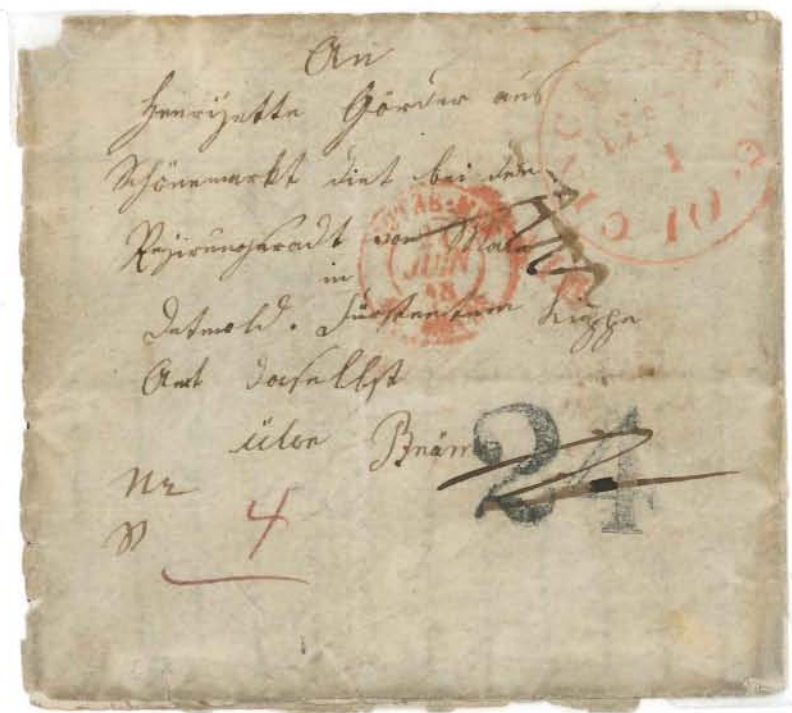 An
Henrijette Görder aus
Schönemarkt diet bei den
Regirungsradt von Mala
in
Detmold. Fürstentum Lippe
Amt daselbst
über Bräm
24
Nr
4
CHICAGO
1
10
JUIN
48